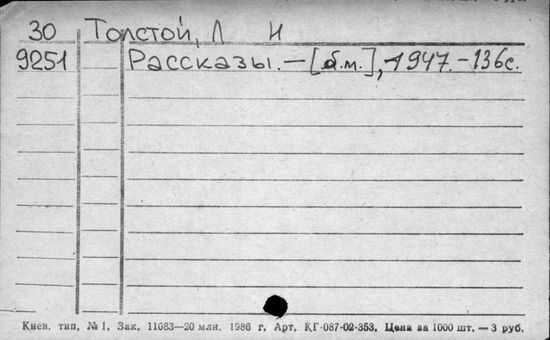 30 Толстой, Л Н
9251 Рассказы. – [б.м.], 1947. – 136с.
Киев. тип. № 1, Зак. 11083—20 млн. 1986 г. Арт. КГ-087-02-353. Цена за 1000 шт. — 3 руб.